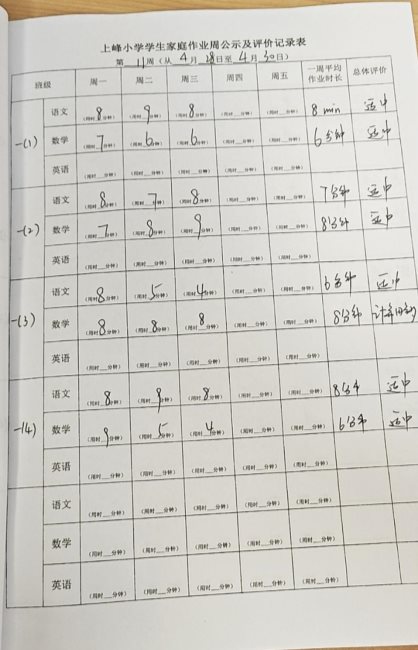 上峰小学学生家庭作业周公示及评价记录表
第 11 周（从 4 月 28 日至 4 月 30 日）
班级 周一 周二 周三 周四 周五 一周平均作业时长 总体评价
一(1) 语文 (用时 8 分钟) (用时 9 分钟) (用时 8 分钟) (用时__分钟) (用时__分钟) 8 min 适中
数学 (用时 7 分钟) (用时 6 分钟) (用时 6 分钟) (用时__分钟) (用时__分钟) 6分钟 适中
英语 (用时__分钟) (用时__分钟) (用时__分钟) (用时__分钟) (用时__分钟)
一(2) 语文 (用时 8 分钟) (用时 7 分钟) (用时 8 分钟) (用时__分钟) (用时__分钟) 7分钟 适中
数学 (用时 7 分钟) (用时 8 分钟) (用时 9 分钟) (用时__分钟) (用时__分钟) 8分钟 适中
英语 (用时__分钟) (用时__分钟) (用时__分钟) (用时__分钟) (用时__分钟)
一(3) 语文 (用时 8 分钟) (用时 5 分钟) (用时 4 分钟) (用时__分钟) (用时__分钟) 6分钟 适中
数学 (用时 8 分钟) (用时 8 分钟) (用时 8 分钟) (用时__分钟) (用时__分钟) 8分钟
英语 (用时__分钟) (用时__分钟) (用时__分钟) (用时__分钟) (用时__分钟)
一(4) 语文 (用时 8 分钟) (用时 9 分钟) (用时 8 分钟) (用时__分钟) (用时__分钟) 8分钟 适中
数学 (用时 9 分钟) (用时 5 分钟) (用时 4 分钟) (用时__分钟) (用时__分钟) 6分钟 适中
英语 (用时__分钟) (用时__分钟) (用时__分钟) (用时__分钟) (用时__分钟)
语文 (用时__分钟) (用时__分钟) (用时__分钟) (用时__分钟) (用时__分钟)
数学 (用时__分钟) (用时__分钟) (用时__分钟) (用时__分钟) (用时__分钟)
英语 (用时__分钟) (用时__分钟) (用时__分钟) (用时__分钟) (用时__分钟)